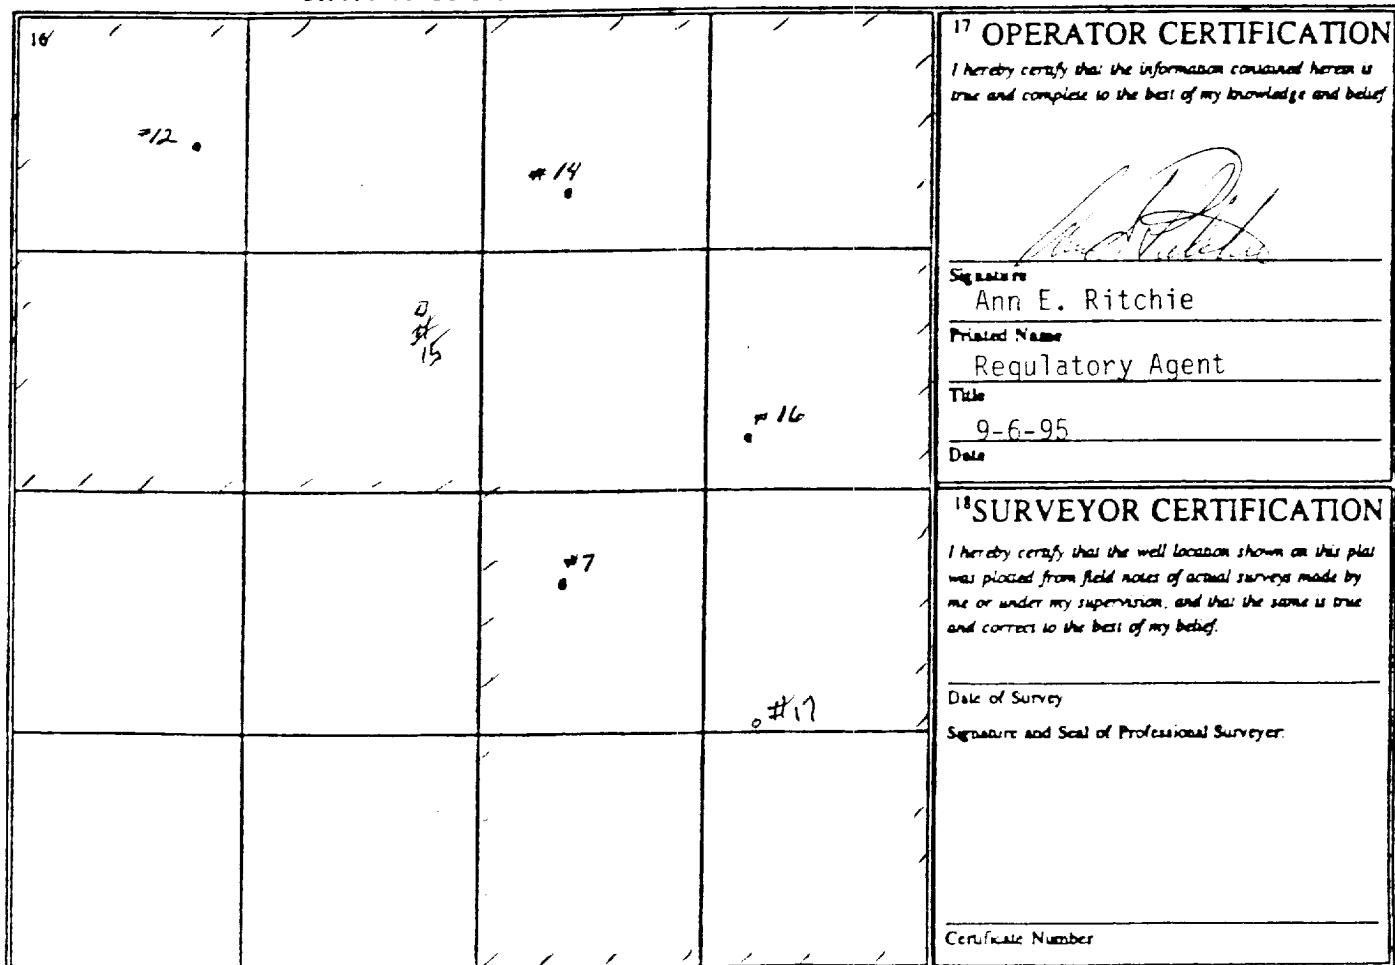 16
#12
#14
#
15
#16
#7
#17
17 OPERATOR CERTIFICATION
I hereby certify that the information contained herein is
true and complete to the best of my knowledge and belief
Signature
Ann E. Ritchie
Printed Name
Regulatory Agent
Title
9-6-95
Date
18 SURVEYOR CERTIFICATION
I hereby certify that the well location shown on this plat
was plotted from field notes of actual surveys made by
me or under my supervision, and that the same is true
and correct to the best of my belief.
Date of Survey
Signature and Seal of Professional Surveyer:
Certificate Number